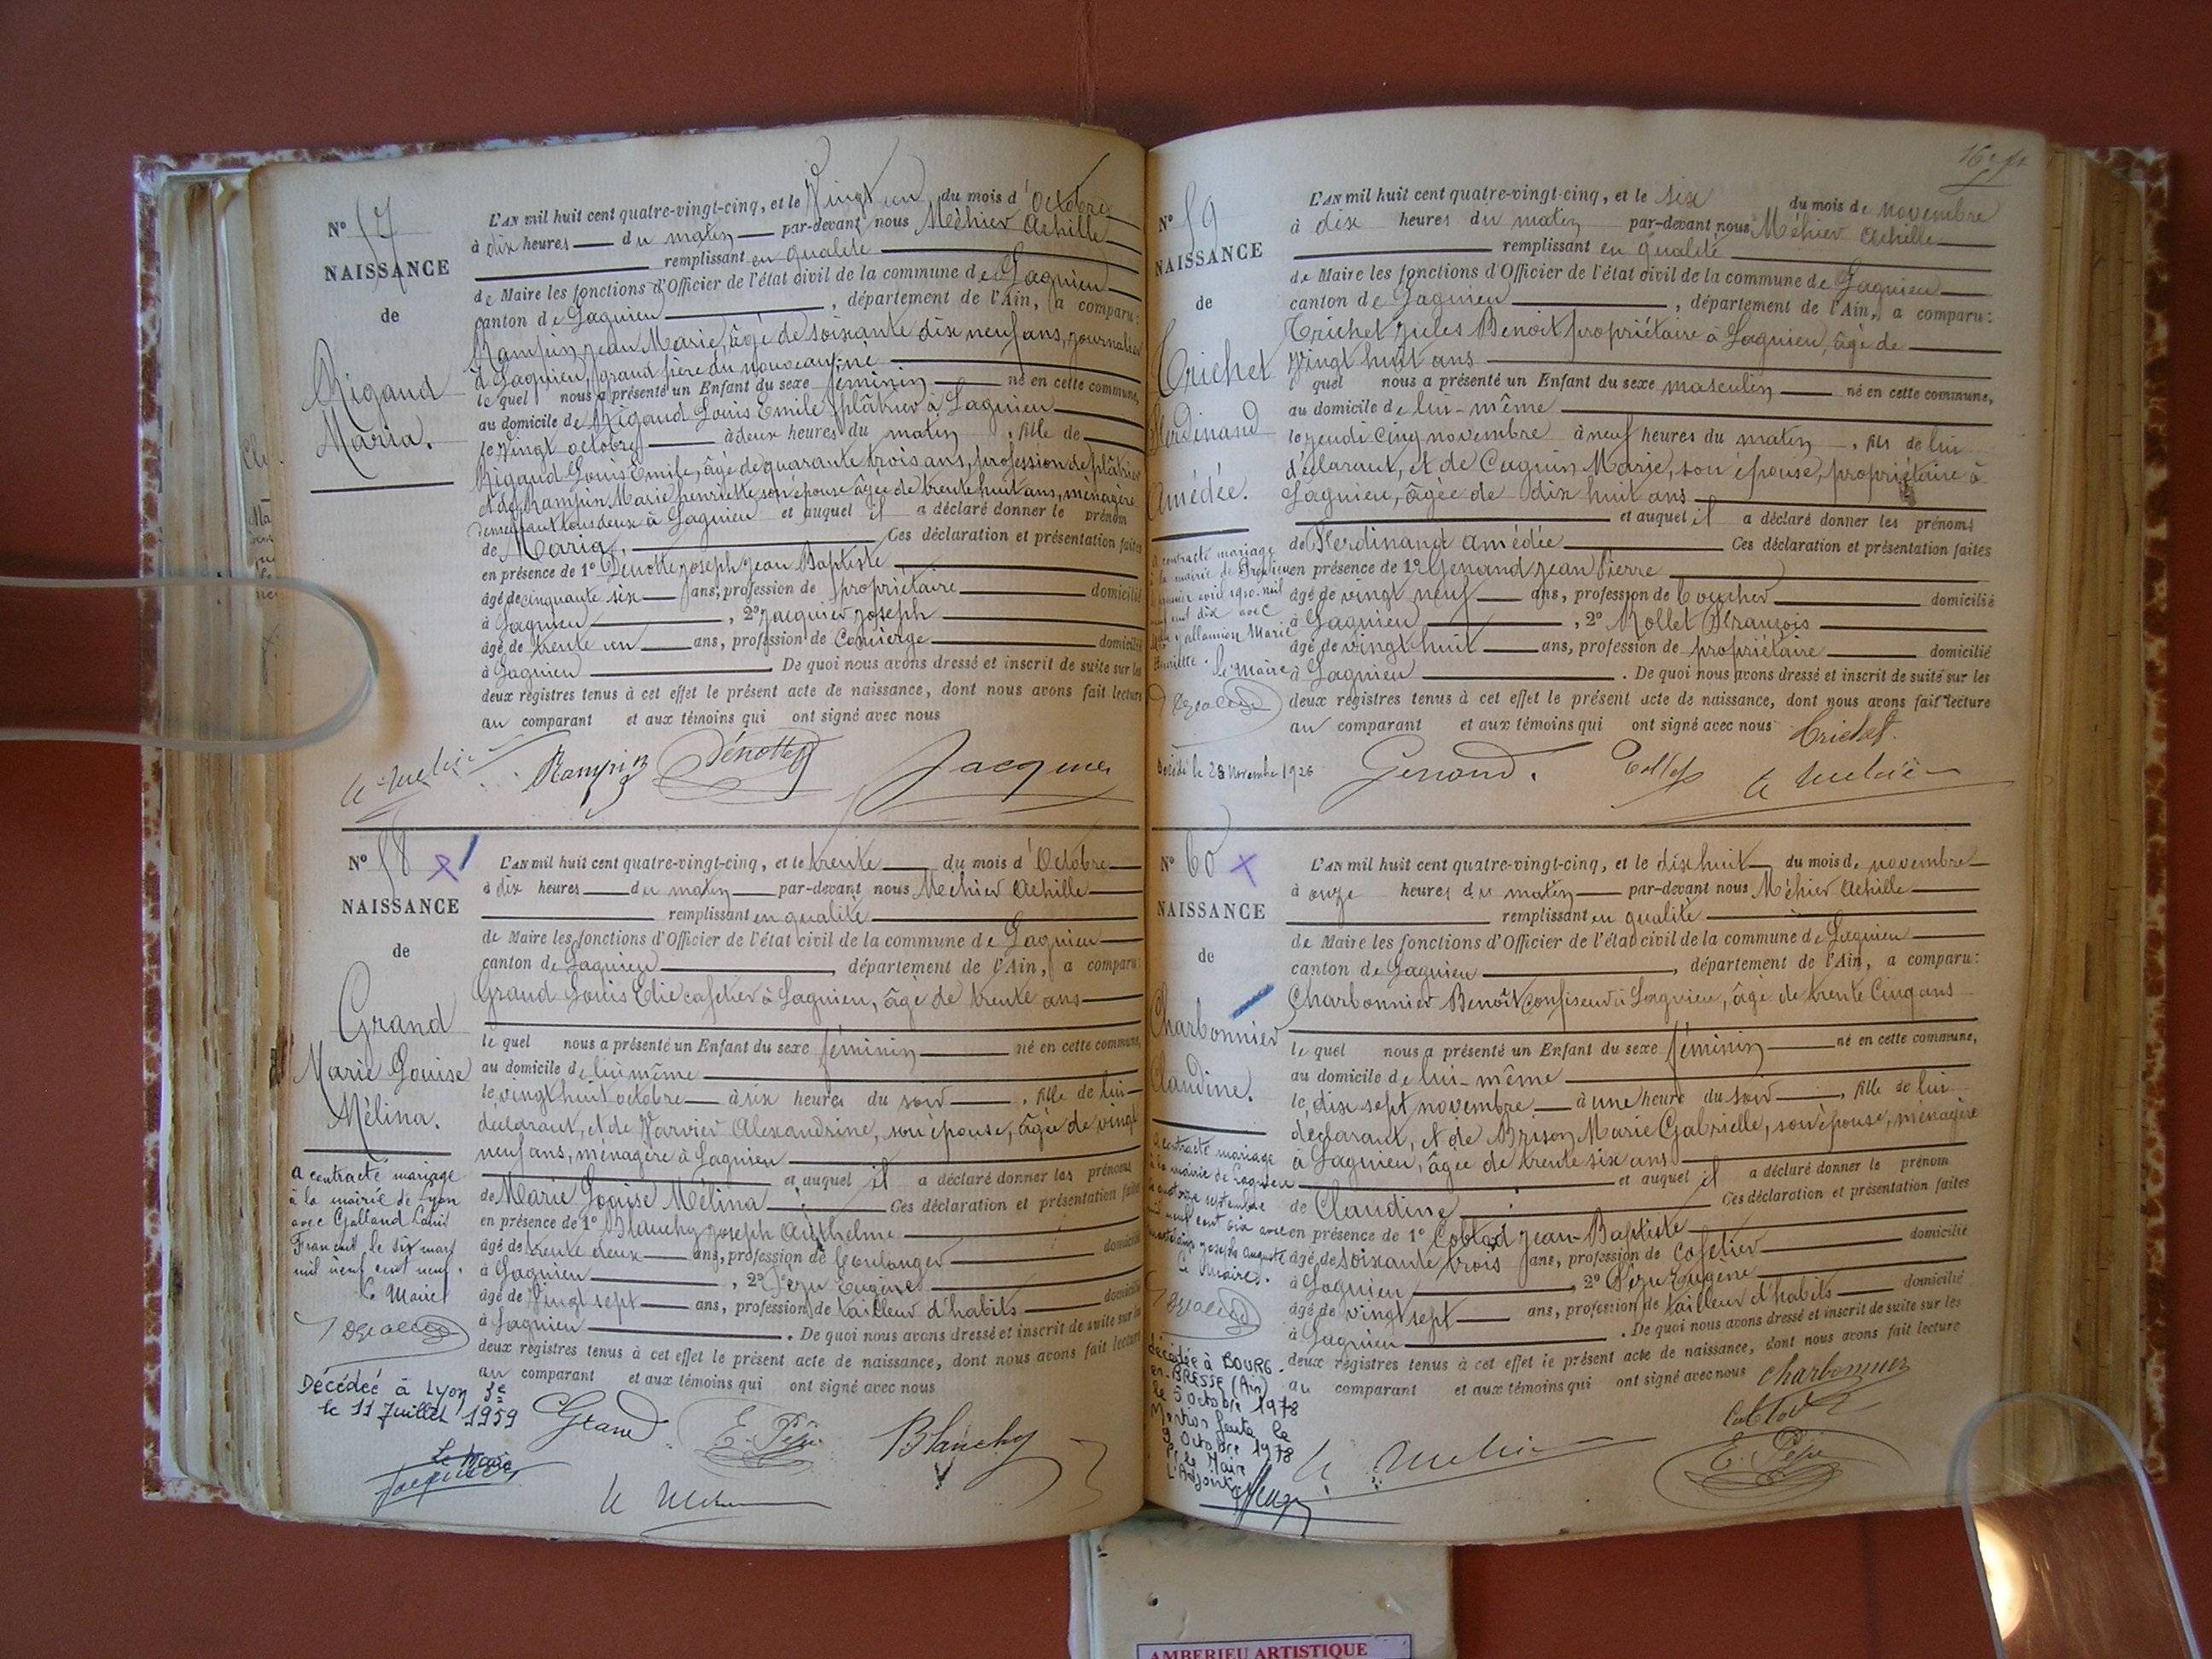 N° 57
NAISSANCE
de
Rigaud
Maria.
L'AN mil huit cent quatre-vingt-cinq, et le Vingt un du mois d'Octobre
à dix heures du matin par-devant nous Méhier Achille
remplissant en qualité
de Maire les fonctions d'Officier de l'état civil de la commune de Lagnieu
canton de Lagnieu, département de l'Ain, a comparu:
Rampin Jean Marie, âgé de soixante dix neuf ans, journalier
à Lagnieu, grand père du nouveau-né
lequel nous a présenté un Enfant du sexe féminin né en cette commune,
au domicile de Rigaud Louis Emile plâtrier à Lagnieu
le Vingt octobre à deux heures du matin, fille de
Rigaud Louis Emile, âgé de quarante trois ans, profession de plâtrier
et de Rampin Marie henriette son épouse âgée de trente huit ans, ménagère
demeurant tous deux à Lagnieu et auquel il a déclaré donner le prénom
de Maria. Ces déclaration et présentation faites
en présence de 1° Dénotte Joseph Jean Baptiste
âgé de cinquante six ans, profession de propriétaire domicilié
à Lagnieu, 2° Jacquier Joseph
âgé de trente un ans, profession de Concierge domicilié
à Lagnieu. De quoi nous avons dressé et inscrit de suite sur les
deux registres tenus à cet effet le présent acte de naissance, dont nous avons fait lecture
au comparant et aux témoins qui ont signé avec nous
Rampin Dénotte Jacquier
N° 58
NAISSANCE
de
Grand
Marie Louise
Mélina.
a contracté mariage
à la mairie de Lyon
avec Galland Louis
François, le six mars
mil neuf cent neuf.
Le Maire
Décédée à Lyon 3e
le 11 Juillet 1959
Le Maire
L'AN mil huit cent quatre-vingt-cinq, et le trente du mois d'Octobre
à dix heures du matin par-devant nous Méhier Achille
remplissant en qualité
de Maire les fonctions d'Officier de l'état civil de la commune de Lagnieu
canton de Lagnieu, département de l'Ain, a comparu:
Grand Louis Elie cafetier à Lagnieu, âgé de trente ans
lequel nous a présenté un Enfant du sexe féminin né en cette commune,
au domicile de lui même
le vingt huit octobre à six heures du soir, fille de lui
déclarant, et de Varvier Alexandrine, son épouse, âgée de vingt
neuf ans, ménagère à Lagnieu
et auquel il a déclaré donner les prénoms
de Marie Louise Mélina. Ces déclaration et présentation faites
en présence de 1° Blanchy Joseph Anthelme
âgé de trente deux ans, profession de boulanger domicilié
à Lagnieu, 2° Pépu Eugène
âgé de Vingt sept ans, profession de tailleur d'habits domicilié
à Lagnieu. De quoi nous avons dressé et inscrit de suite sur les
deux registres tenus à cet effet le présent acte de naissance, dont nous avons fait lecture
au comparant et aux témoins qui ont signé avec nous
Grand E. Pépu Blanchy
N° 59
NAISSANCE
de
Trichet
Ferdinand
Amédée.
a contracté mariage
à la mairie de
avril 1910. mil
neuf cent dix avec
Marie
Le Maire
Décédé le 28 novembre 1926
L'AN mil huit cent quatre-vingt-cinq, et le six du mois de novembre
à dix heures du matin par-devant nous Méhier Achille
remplissant en qualité
de Maire les fonctions d'Officier de l'état civil de la commune de Lagnieu
canton de Lagnieu, département de l'Ain, a comparu:
Trichet Jules Benoit propriétaire à Lagnieu, âgé de
Vingt huit ans
lequel nous a présenté un Enfant du sexe masculin né en cette commune,
au domicile de lui-même
le jeudi cinq novembre à neuf heures du matin, fils de lui
déclarant, et de Cuquin Marie, son épouse, propriétaire à
Lagnieu, âgée de dix huit ans
et auquel il a déclaré donner les prénoms
de Ferdinand Amédée Ces déclaration et présentation faites
en présence de 1° Genand Jean Pierre
âgé de vingt neuf ans, profession de boucher domicilié
à Lagnieu, 2° Rollet François
âgé de vingt huit ans, profession de propriétaire domicilié
à Lagnieu. De quoi nous avons dressé et inscrit de suite sur les
deux registres tenus à cet effet le présent acte de naissance, dont nous avons fait lecture
au comparant et aux témoins qui ont signé avec nous Trichet.
Genand.
N° 60
NAISSANCE
de
Charbonnier
Claudine.
a contracté mariage
à la mairie de Lagnieu
le quatorze septembre
mil neuf cent six avec
joseph auguste
Le Maire.
décédée à BOURG-
en-BRESSE (Ain)
le 5 Octobre 1978
Mention faite le
9 Octobre 1978
P/ le Maire
L'Adjoint
L'AN mil huit cent quatre-vingt-cinq, et le dix huit du mois de novembre
à onze heures du matin par-devant nous Méhier Achille
remplissant en qualité
de Maire les fonctions d'Officier de l'état civil de la commune de Lagnieu
canton de Lagnieu, département de l'Ain, a comparu:
Charbonnier Benoît confiseur à Lagnieu, âgé de trente Cinq ans
lequel nous a présenté un Enfant du sexe féminin né en cette commune,
au domicile de lui-même
le dix sept novembre à une heure du soir, fille de lui
déclarant, et de Brison Marie Gabrielle, son épouse, ménagère
à Lagnieu, âgée de trente six ans
et auquel il a déclaré donner le prénom
de Claudine Ces déclaration et présentation faites
en présence de 1° Coblod Jean-Baptiste
âgé de soixante trois ans, profession de cafetier domicilié
à Lagnieu, 2° Pépu Eugène
âgé de vingt sept ans, profession de tailleur d'habits domicilié
à Lagnieu. De quoi nous avons dressé et inscrit de suite sur les
deux registres tenus à cet effet le présent acte de naissance, dont nous avons fait lecture
au comparant et aux témoins qui ont signé avec nous Charbonnier
E. Pépu
AMBERIEU ARTISTIQUE